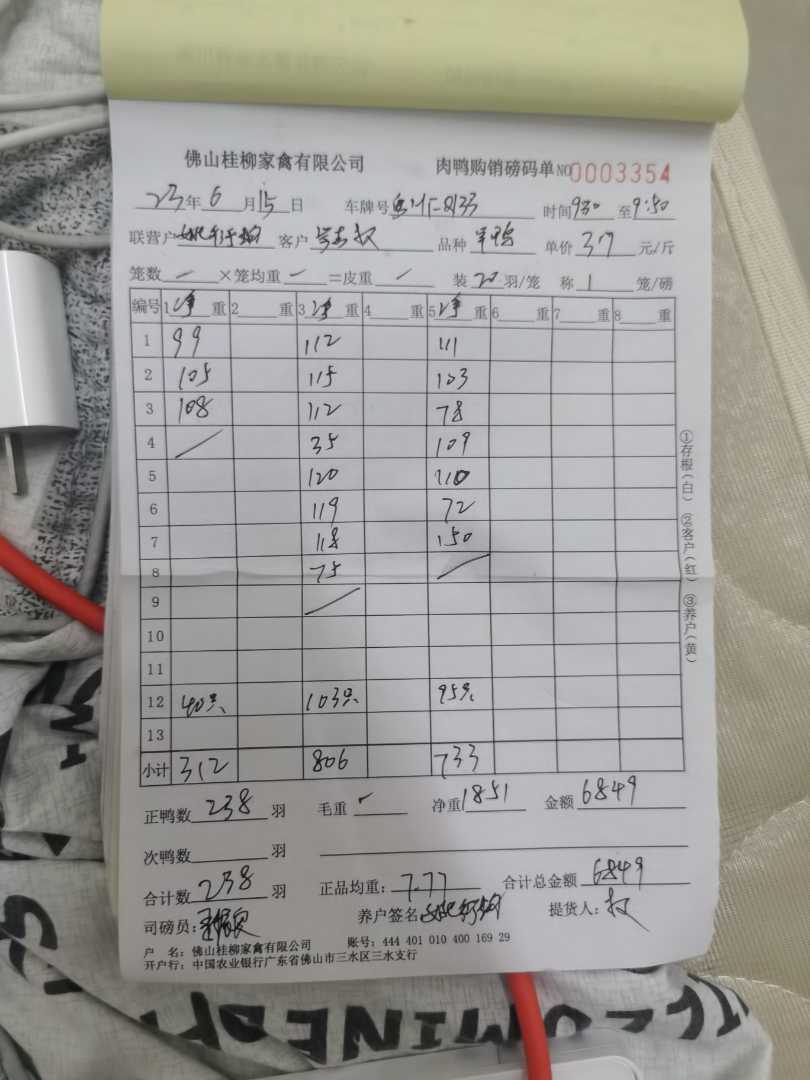 佛山桂柳家禽有限公司 肉鸭购销磅码单 NO 0003354
23年6月15日 车牌号 时间 930 至 9:50
联营户 客户 品种 单价 3.7 元/斤
笼数 — ×笼均重 — =皮重 — 装 20 羽/笼 称 1 笼/磅
编号 1净重 2 重 3净重 4 重 5净重 6 重 7 重 8 重
1 99 112 111
2 105 115 103
3 108 112 78
4 35 109
5 120 110
6 119 72
7 118 150
8 75
9
10
11
12 40只 103只 95只
13
小计 312 806 733
正鸭数 238 羽 毛重 净重 1851 金额 6849
次鸭数 羽
合计数 238 羽 正品均重: 7.77 合计总金额 6849
司磅员: 养户签名 提货人: 权
户 名: 佛山桂柳家禽有限公司 账号: 444 401 010 400 169 29
开户行: 中国农业银行广东省佛山市三水区三水支行
①存根(白) ②客户(红) ③养户(黄)